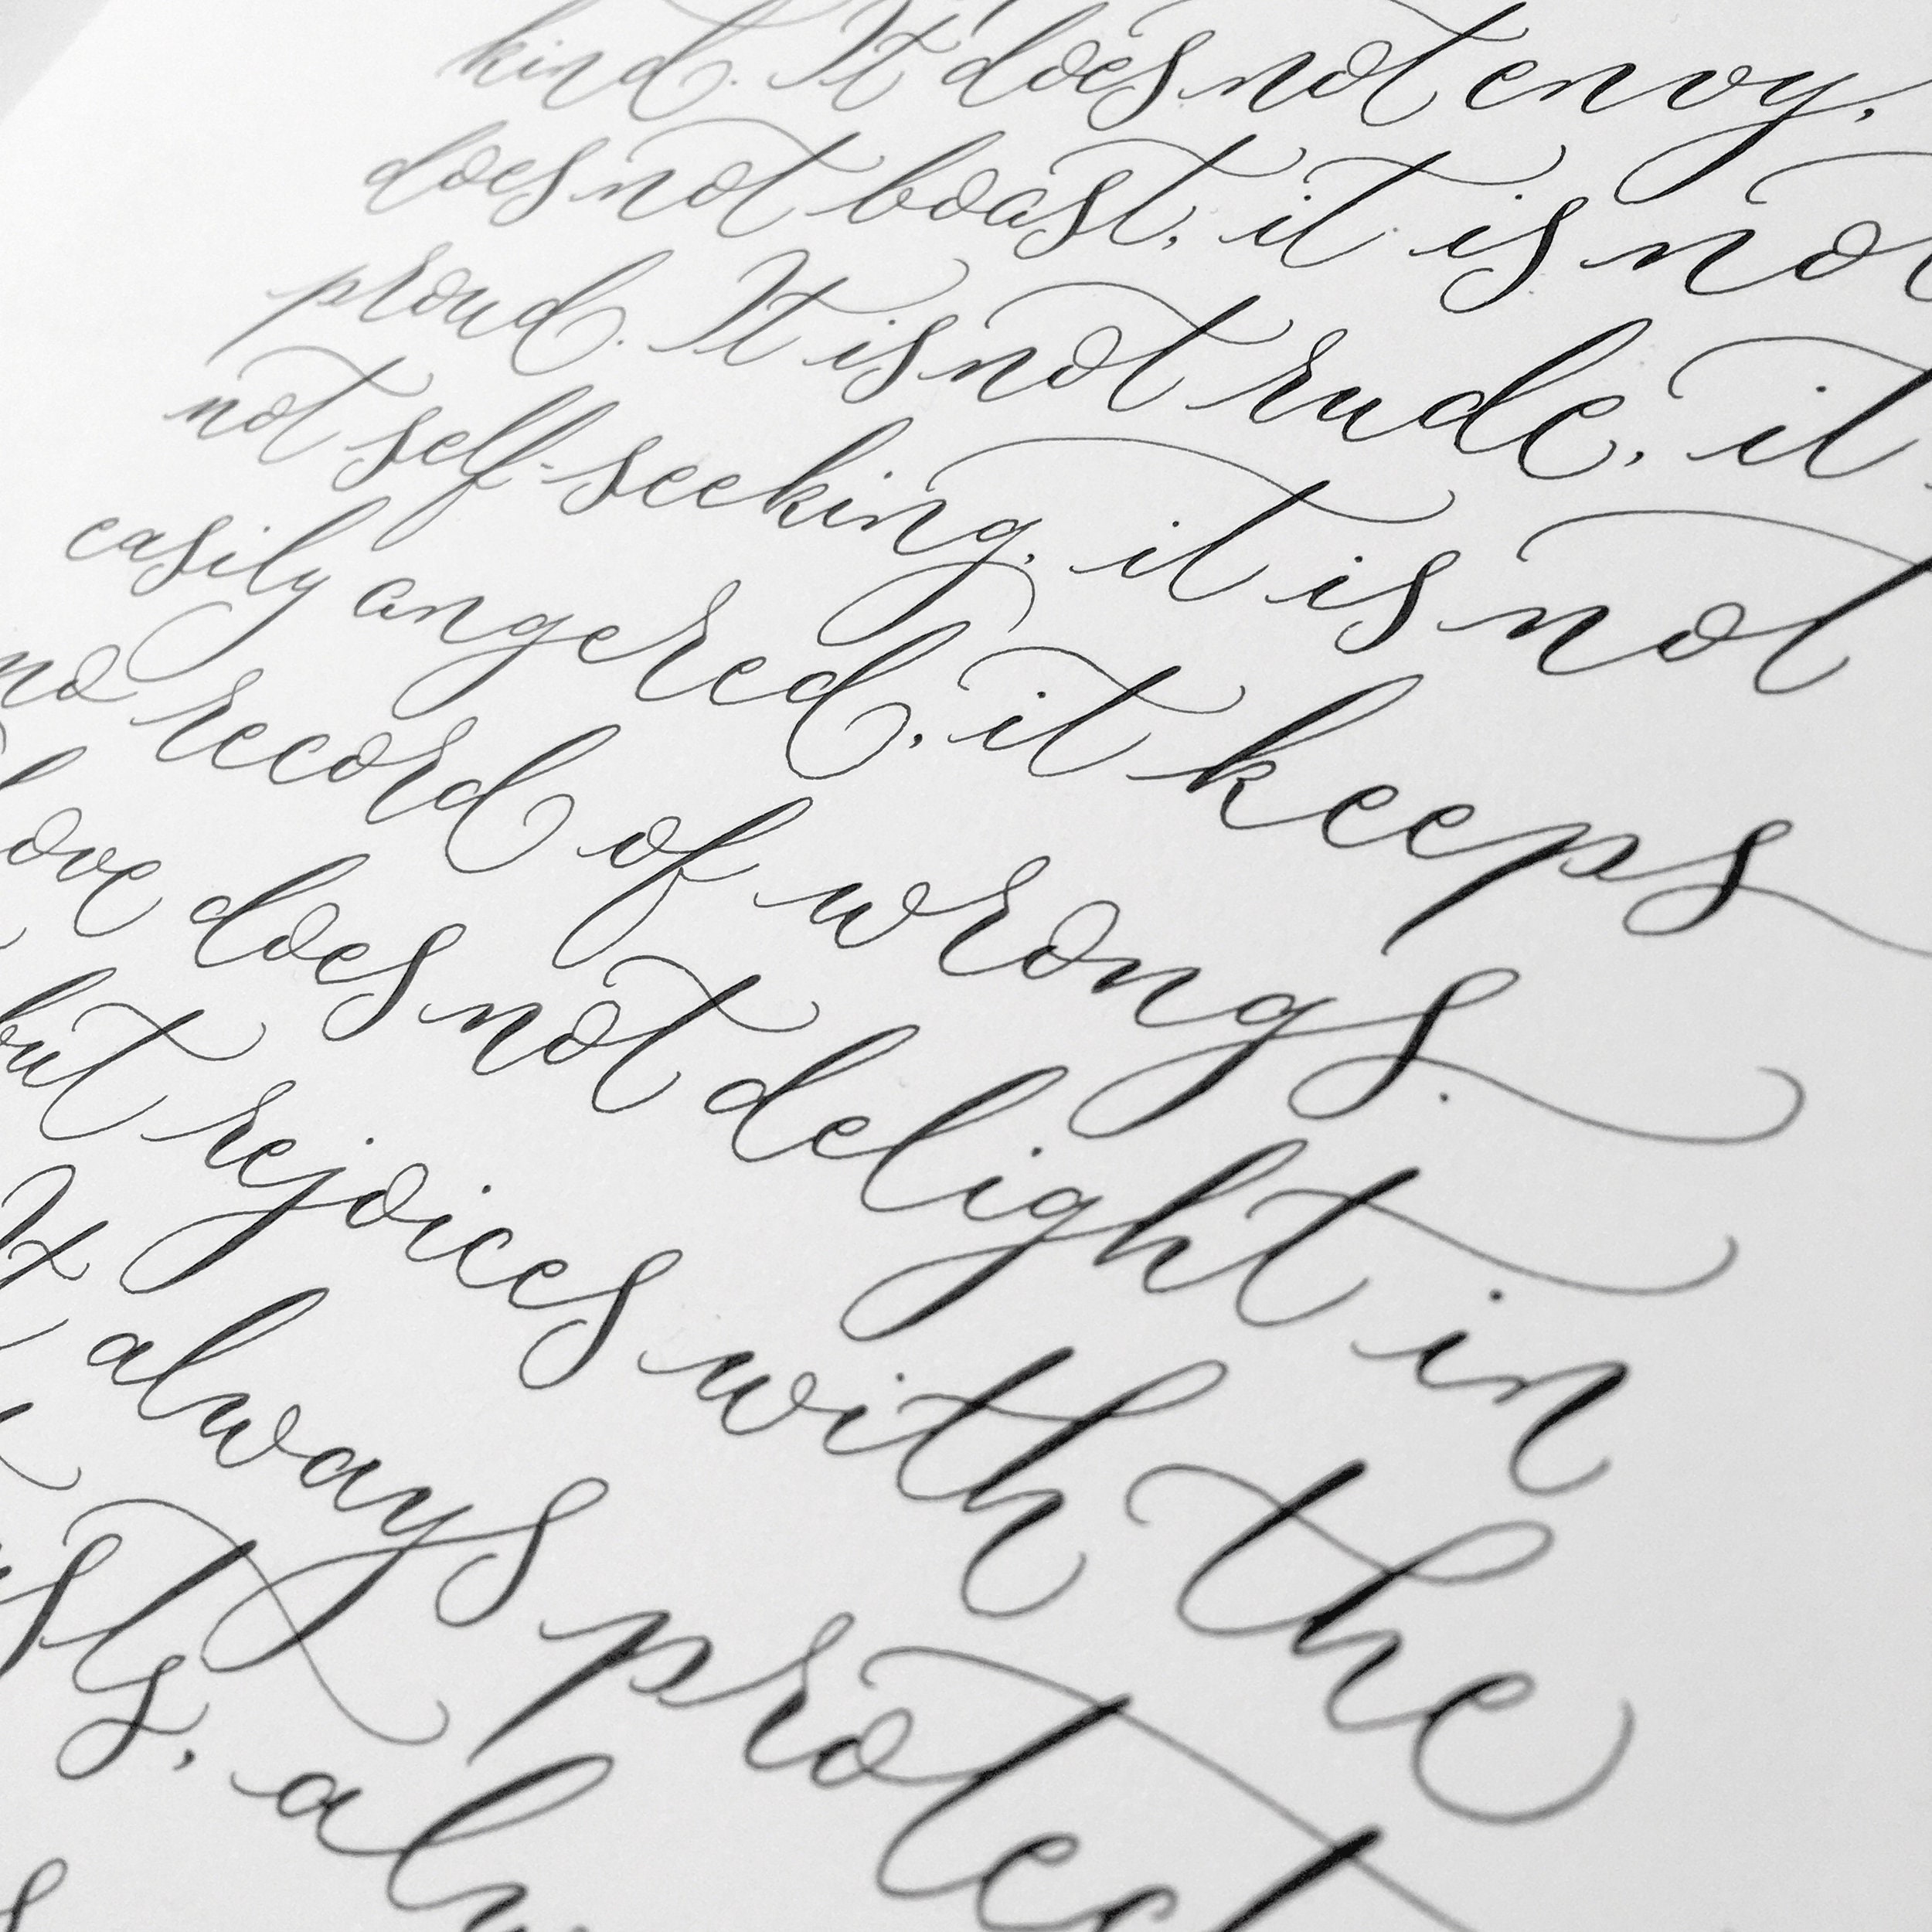 kind. It does not envy,
does not boast, it is no
proud. It is not rude, it
not self-seeking, it is not
easily angered, it keeps
no record of wrongs.
love does not delight in
but rejoices with the
It always protect
sts, alw